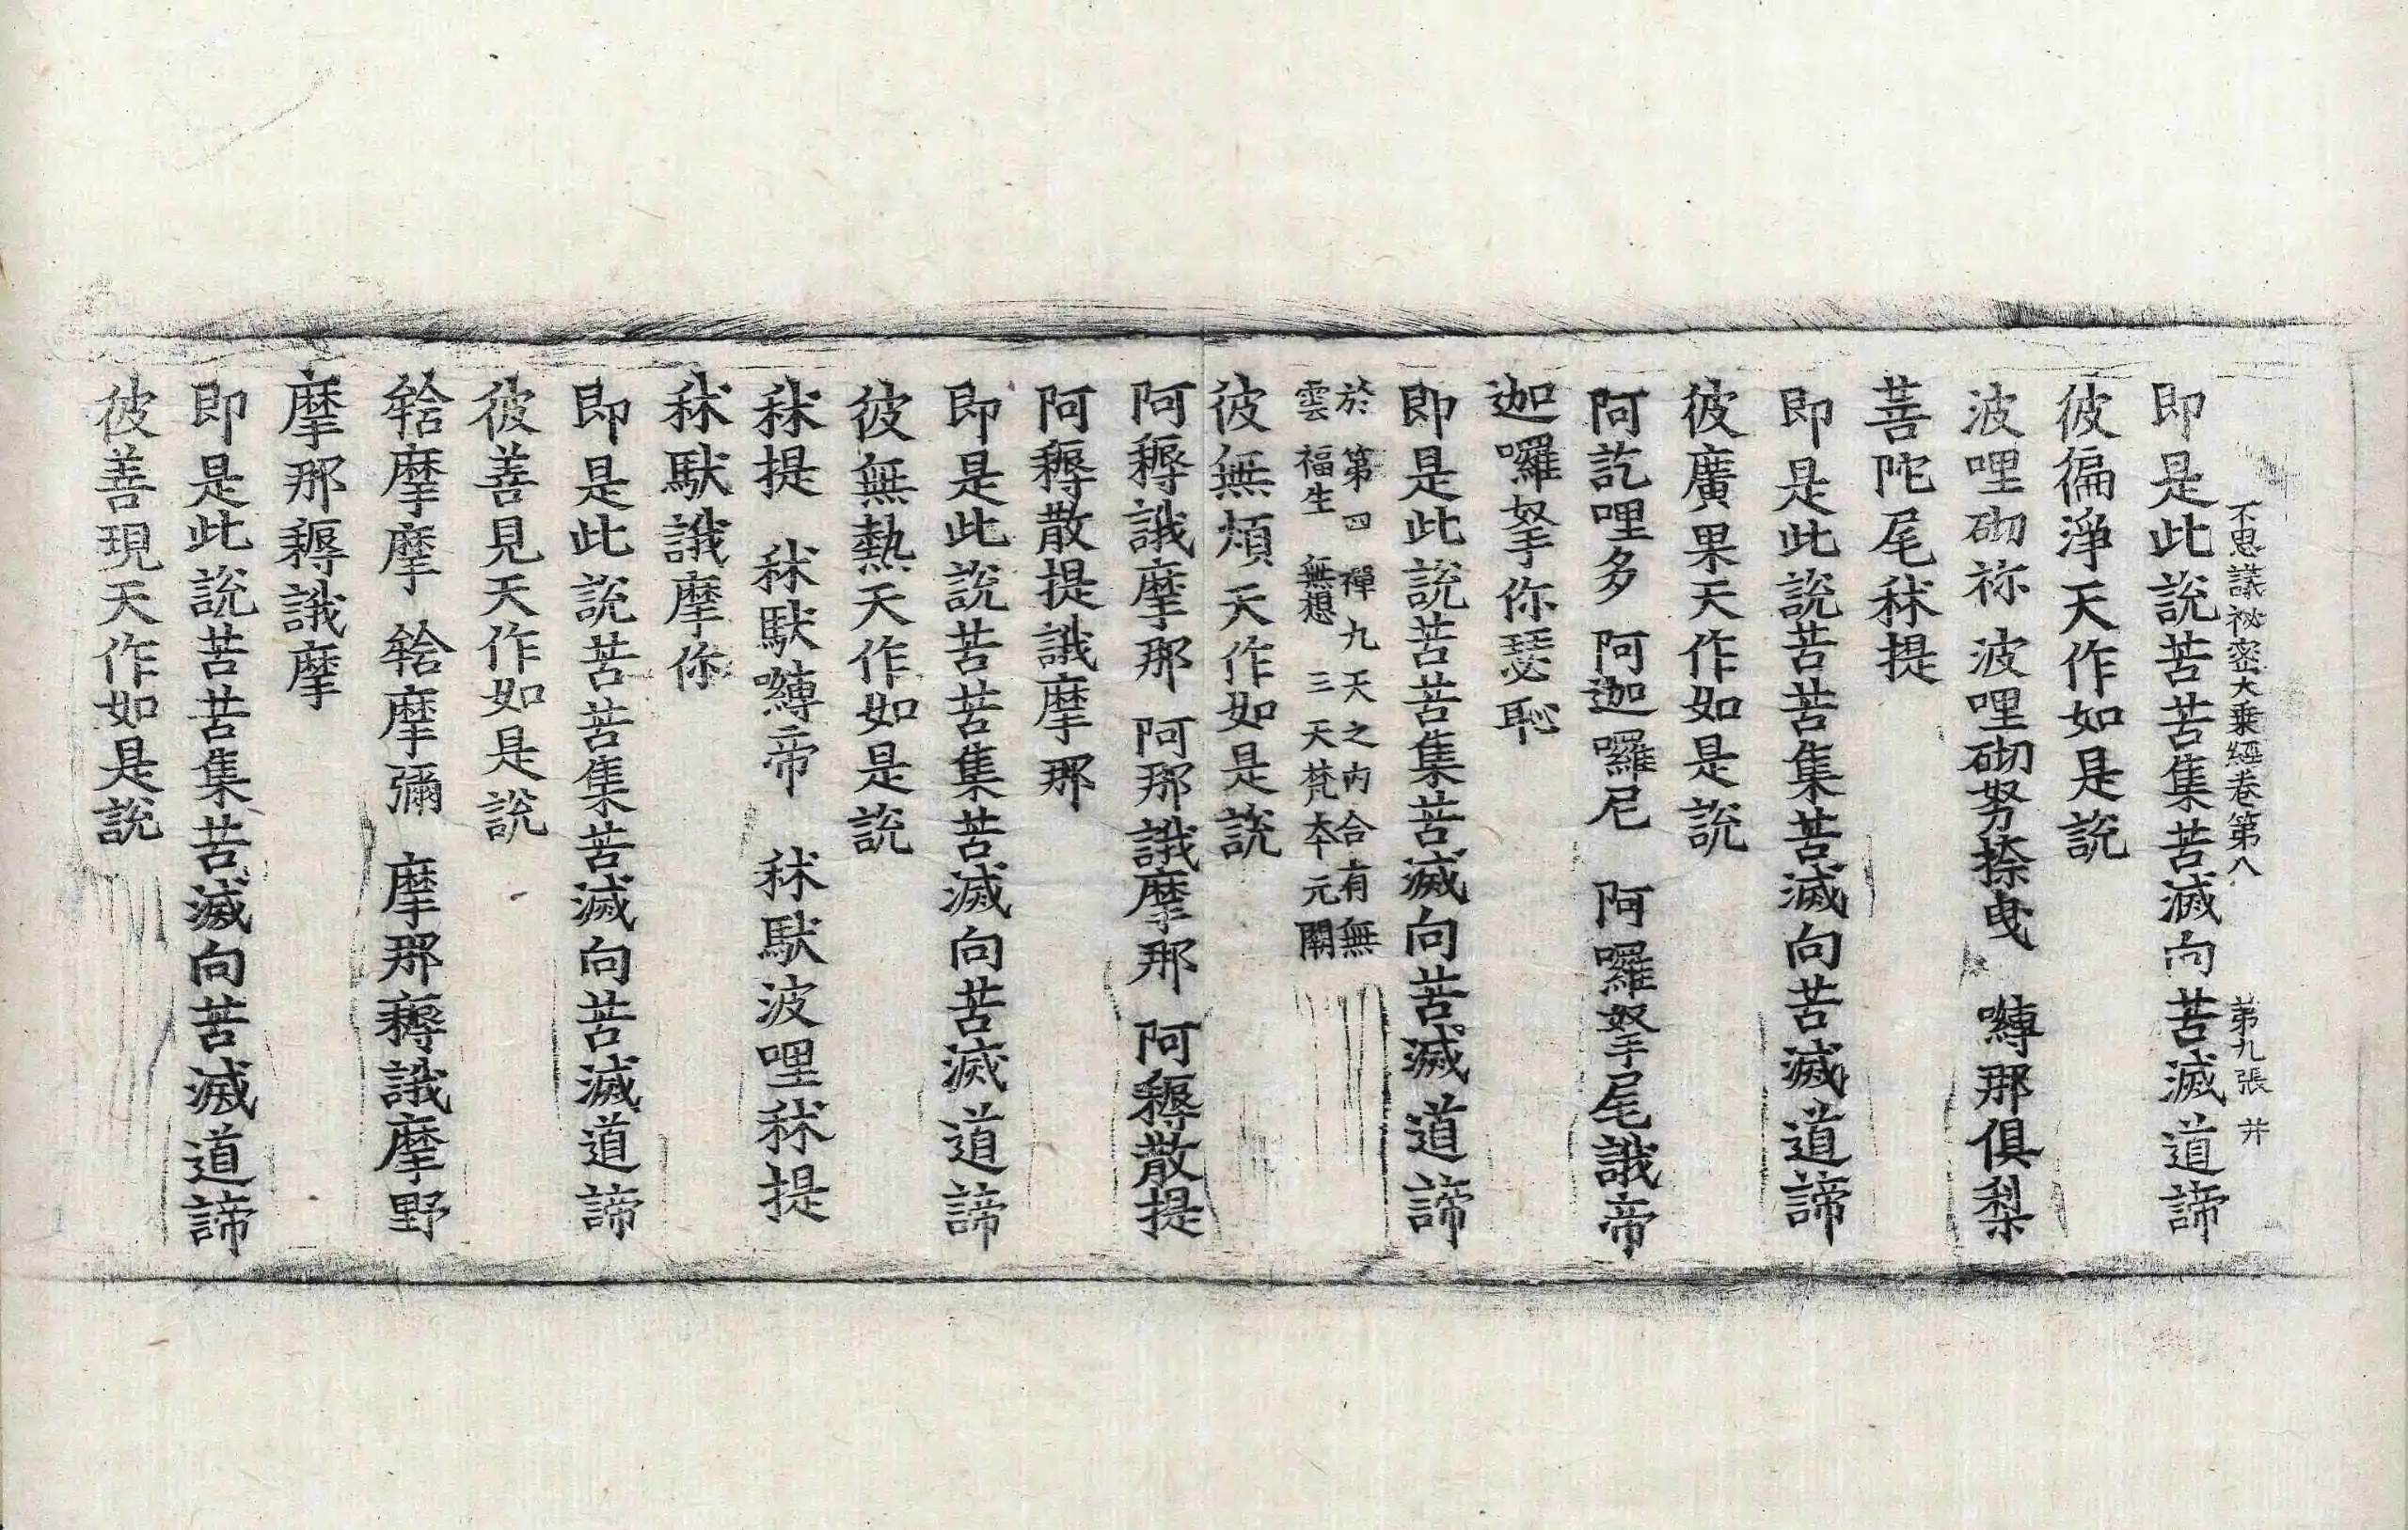 不思議祕密大乗經卷第八　第九張　廾
即是此説苦苦集苦滅向苦滅道諦
彼徧淨天作如是説
波哩砌祢　波哩砌努捺曳　嚩那俱梨
菩陀尾秫提
即是此説苦苦集苦滅向苦滅道諦
彼廣果天作如是説
阿訖哩多　阿迦囉尼　阿囉拏尾誐帝
迦囉拏你瑟恥
即是此説苦苦集苦滅向苦滅道諦
於第四禪九天之内合有無
雲福生無想三天梵本元闕
彼無煩天作如是説
阿耨誐摩那　阿那誐摩那　阿耨散提
阿耨散提誐摩那
即是此説苦苦集苦滅向苦滅道諦
彼無熱天作如是説
秫提　秫馱嚩帝　秫馱波哩秫提
秫馱誐摩你
即是此説苦苦集苦滅向苦滅道諦
彼善見天作如是説
摩摩　摩彌　摩那耨誐摩野
摩那耨誐摩
即是此説苦苦集苦滅向苦滅道諦
彼善現天作如是説